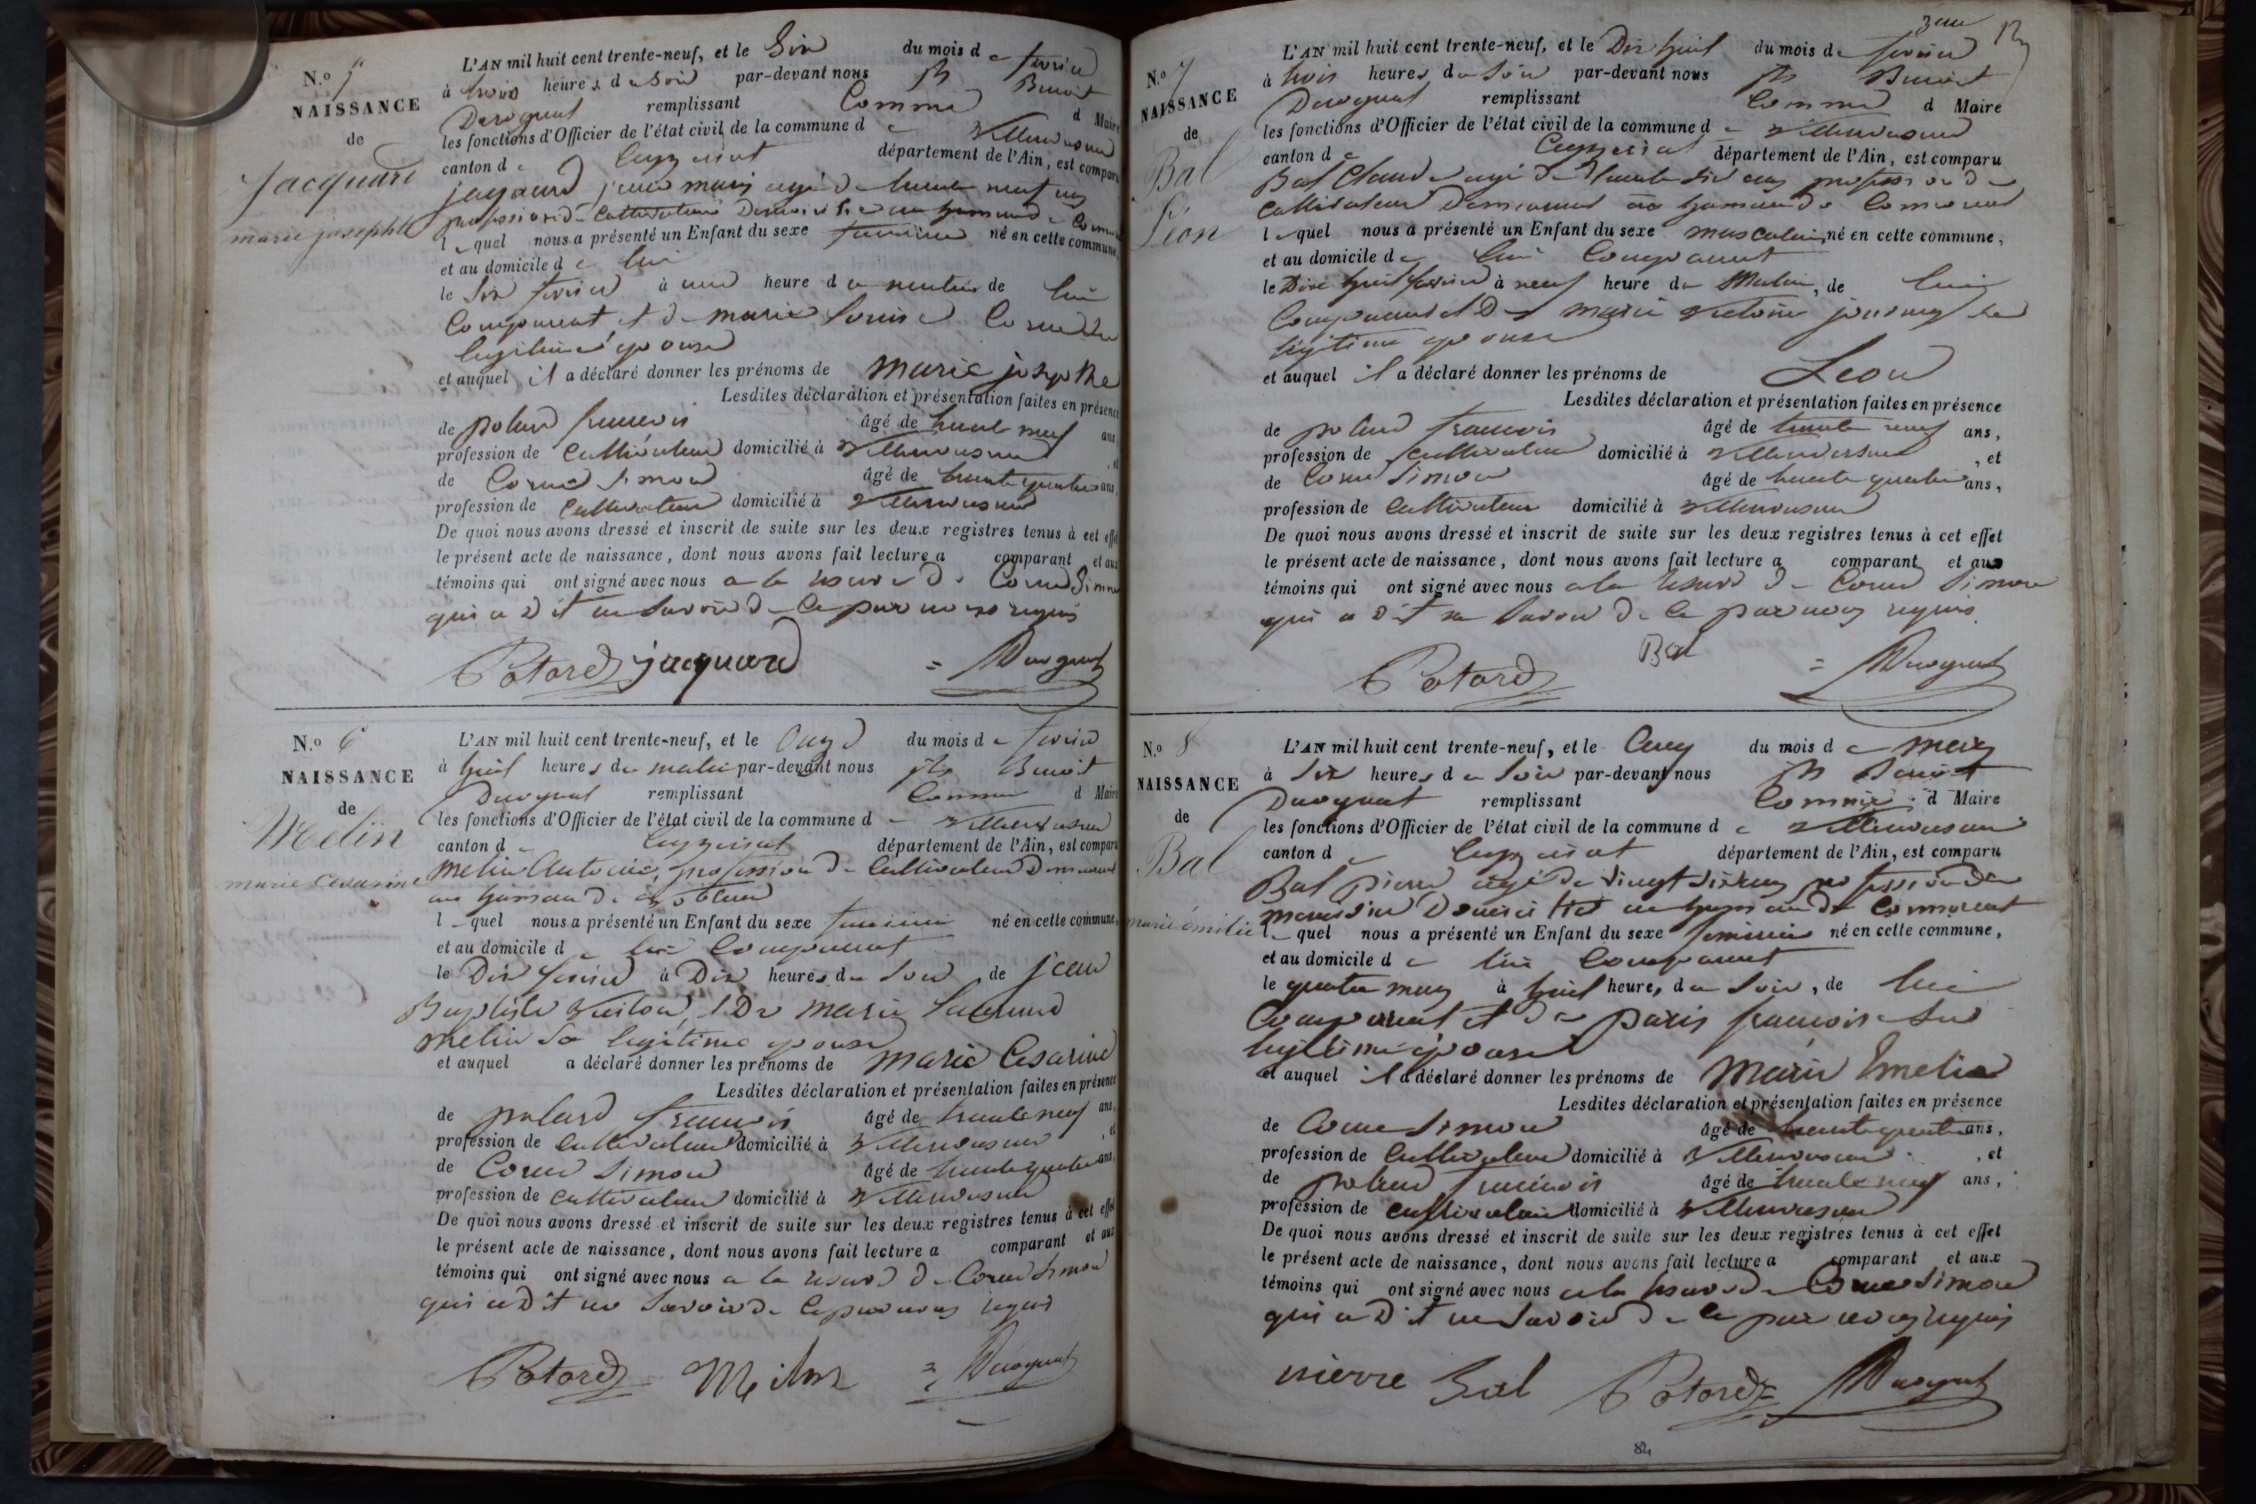 N.o 5
NAISSANCE
de
Jacquard
marie josephte
L'AN mil huit cent trente-neuf, et le Six du mois de fevrier
à trois heures du soir par-devant nous Benoit
remplissant Comme d Maire
les fonctions d'Officier de l'état civil de la commune de Villereversure
canton de Ceyzeriat département de l'Ain, est comparu
âgé de trente neuf ans
profession de Cultivateur
lequel nous a présenté un Enfant du sexe feminin né en cette commune,
et au domicile de lui
le Six fevrier à une heure du matin de lui
Comparant et de marie Louise
legitime epouse
et auquel il a déclaré donner les prénoms de Marie josephte
Lesdites déclaration et présentation faites en présence
de potard francois âgé de trente neuf ans
profession de Cultivateur domicilié à Villereversure, et
de Corne Simon âgé de trente quatre ans,
profession de Cultivateur domicilié à Villereversure
De quoi nous avons dressé et inscrit de suite sur les deux registres tenus à cet effet
le présent acte de naissance, dont nous avons fait lecture a comparant et aux
témoins qui ont signé avec nous a la reserve de Corne Simon
qui a Dit ne Savoir de ce par nous requis
Potard jacquard
N.o 6
NAISSANCE
de
Melin
marie Cesarine
L'AN mil huit cent trente-neuf, et le Onze du mois de fevrier
à huit heures du matin par-devant nous Benoit
remplissant Comme d Maire
les fonctions d'Officier de l'état civil de la commune de Villereversure
canton de Ceyzeriat département de l'Ain, est comparu
Melin Antoine, profession de Cultivateur Demeurant
au hameau de
lequel nous a présenté un Enfant du sexe feminin né en cette commune,
et au domicile de lui Comparant
le Dix fevrier à Dix heures du Soir, de jean
Baptiste et De marie
Melin Sa legitime epouse
et auquel a déclaré donner les prénoms de Marie Cesarine
Lesdites déclaration et présentation faites en présence
de potard francois âgé de trente neuf ans,
profession de Cultivateur domicilié à Villereversure, et
de Corne Simon âgé de trente quatre ans,
profession de Cultivateur domicilié à Villereversure
De quoi nous avons dressé et inscrit de suite sur les deux registres tenus à cet effet
le présent acte de naissance, dont nous avons fait lecture a comparant et aux
témoins qui ont signé avec nous a la reserve de Corne Simon
qui a Dit ne Savoir de ce par nous requis
Potard Melin
N.o 7
NAISSANCE
de
Bal
Léon
L'AN mil huit cent trente-neuf, et le Dix huit du mois de fevrier
à trois heures du Soir par-devant nous Benoit
remplissant Comme d Maire
les fonctions d'Officier de l'état civil de la commune de Villereversure
canton de Ceyzeriat département de l'Ain, est comparu
Bal Claude agé de trente Six ans profession de
Cultivateur Demeurant au hameau de
lequel nous a présenté un Enfant du sexe masculin, né en cette commune,
et au domicile de lui Comparant
le Dix huit fevrier à neuf heure du Matin, de lui
Comparant et De marie victoire Sa
legitime epouse
et auquel il a déclaré donner les prénoms de Leon
Lesdites déclaration et présentation faites en présence
de potard francois âgé de trente neuf ans,
profession de Cultivateur domicilié à Villereversure, et
de Corne Simon âgé de trente quatre ans,
profession de Cultivateur domicilié à Villereversure
De quoi nous avons dressé et inscrit de suite sur les deux registres tenus à cet effet
le présent acte de naissance, dont nous avons fait lecture a comparant et aux
témoins qui ont signé avec nous a la reserve de Corne Simon
qui a Dit ne Savoir de ce par nous requis
Potard Bal
N.o 8
NAISSANCE
de
Bal
marie émilie
L'AN mil huit cent trente-neuf, et le Cinq du mois de mars
à Six heures du Soir par-devant nous Benoit
remplissant Comme d Maire
les fonctions d'Officier de l'état civil de la commune de Villereversure
canton de Ceyzeriat département de l'Ain, est comparu
Bal pierre agé de vingt Six ans profession de
au hameau de
lequel nous a présenté un Enfant du sexe feminin né en cette commune,
et au domicile de lui Comparant
le quatre mars à huit heures du Soir, de lui
Comparant et de paris francoise Sa
legitime epouse
et auquel il a déclaré donner les prénoms de Marie Emelie
Lesdites déclaration et présentation faites en présence
de Corne Simon âgé de trente quatre ans,
profession de Cultivateur domicilié à Villereversure, et
de potard francois âgé de trente neuf ans,
profession de Cultivateur domicilié à Villereversure
De quoi nous avons dressé et inscrit de suite sur les deux registres tenus à cet effet
le présent acte de naissance, dont nous avons fait lecture a comparant et aux
témoins qui ont signé avec nous a la reserve de Corne Simon
qui a Dit ne Savoir de ce par nous requis
pierre Bal Potard
84